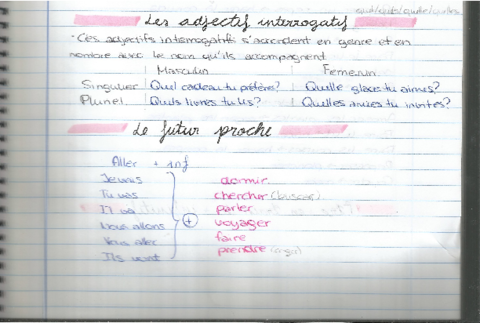 quel/quels/quelle/quelles
Les adjectif interrogatif
- Ces adjectifs interrogatifs s'accordent en genre et en
nombre avec le nom qu'ils accompagnent
Masculin Feminin
Singulier Quel cadeau tu préfères? Quelle glace tu aimes?
Pluriel Quels livres tu lis? Quelles amies tu invites?
Le futur proche
Aller + inf
Je vais dormir
Tu vas chercher (buscar)
Il va parler
Nous allons + voyager
Vous allez faire
Ils vont prendre